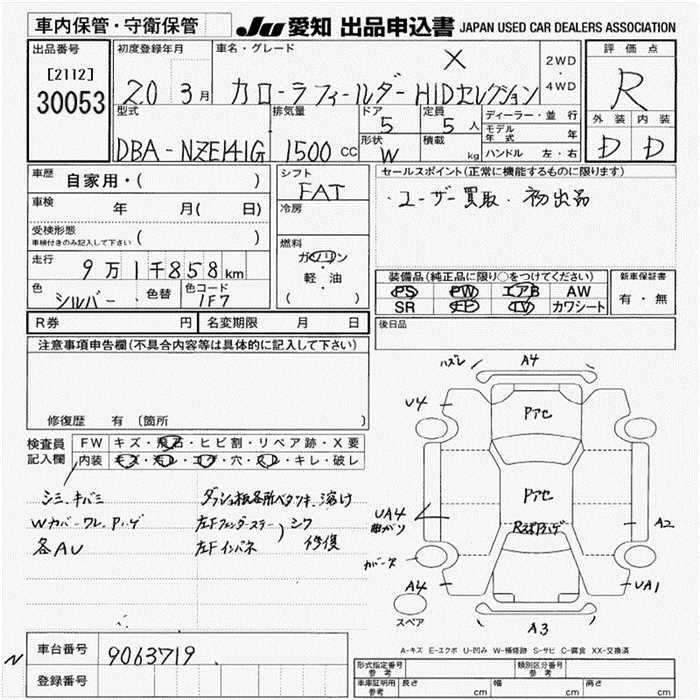 車内保管・守衛保管
JU 愛知 出品申込書 JAPAN USED CAR DEALERS ASSOCIATION
出品番号 初度登録年月 車名・グレード 評価点
[2112] X 2WD
30053 20 3月 カローラフィールダー HIDセレクション ・ 4WD R
型式 排気量 ドア 定員 ディーラー・並行 外装 内装
5 5人 モデル年式 年
形状 積載
DBA-NZE141G 1500 CC W kg ハンドル 左・右 D D
車歴 自家用・( ) シフト FAT セールスポイント(正常に機能するものに限ります)
車検 年 月( 日) 冷房 ・ユーザー買取・初出品
受検形態
車検付きのみ記入して下さい ( ) 燃料
走行 9万1千858km ガソリン 装備品(純正品に限り○をつけてください) 新車保証書
軽・油 PS PW エアB AW 有・無
色 シルバー 色替 色コード 1F7 ( ) SR EP TV カワシート
R券 円 名変期限 月 日 後日品
注意事項申告欄(不具合内容等は具体的に記入して下さい)
修復歴 有 〔箇所 〕
検査員 FW キズ・飛石・ヒビ割・リペア跡・X要
記入欄 内装 キズ・汚レ・コゲ・穴・スレ・キレ・破レ
シミ・キバミ ダッシュ板各所ベタツキ、溶け
Wカバーワレ、P,ハゲ 左Fフェンダーステー シワ
各AU 左Fインパネ 修復
ハズレ A4
U4
Pアセ
Pアセ
UA4
曲がり
A2
A4
UA1
スペア
A3
A-キズ E-エクボ U-凹み W-補修跡 S-サビ C-腐食 XX-交換済
車台番号 9063719
登録番号
形式指定番号 参考 類別区分番号 参考
車庫証明用 参考 長さ cm 幅 cm 高さ cm